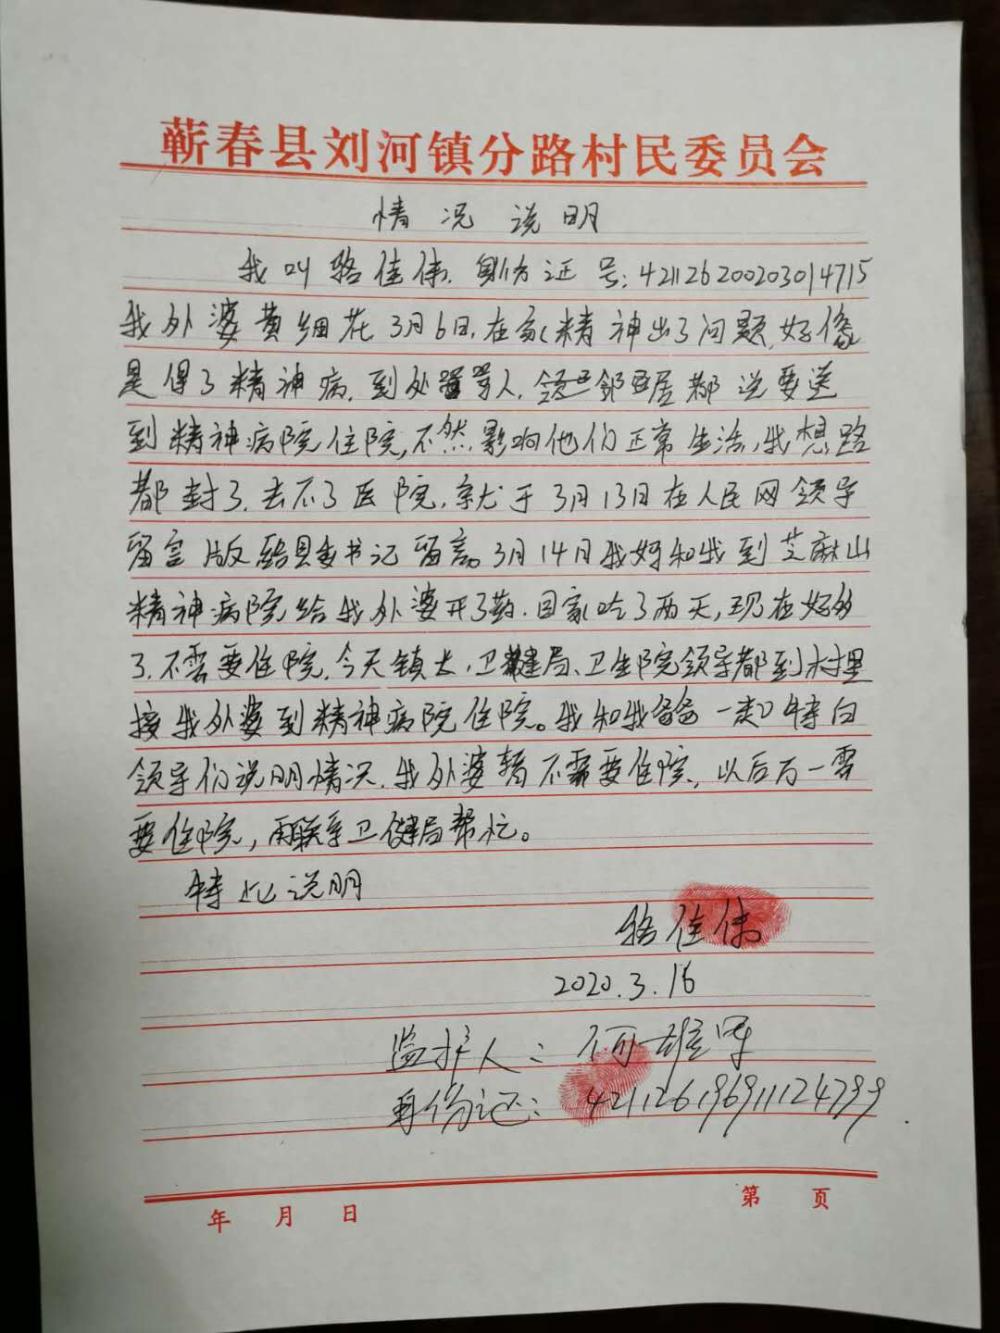 蕲春县刘河镇分路村民委员会
情况说明
我叫骆佳伟,身份证号:421126200203014715
我外婆黄细花3月6日,在家精神出了问题,好像
是得了精神病,到处骂人,邻居都说要送
到精神病院住院,不然影响他们正常生活,我想路
都封了,去不了医院,就于3月13日在人民网领导
留言版给县委书记留言。3月14日我妈和我到芝麻山
精神病院给我外婆开了药,回家吃了两天,现在好多
了,不需要住院,今天镇长,卫健局、卫生院领导都到村里
接我外婆到精神病院住院。我和我爸爸一起特向
领导们说明情况,我外婆暂不需要住院,以后万一需
要住院,再联系卫健局帮忙。
特此说明
骆佳伟
2020.3.16
监护人:
身份证:421126196911124799
年 月 日 第 页